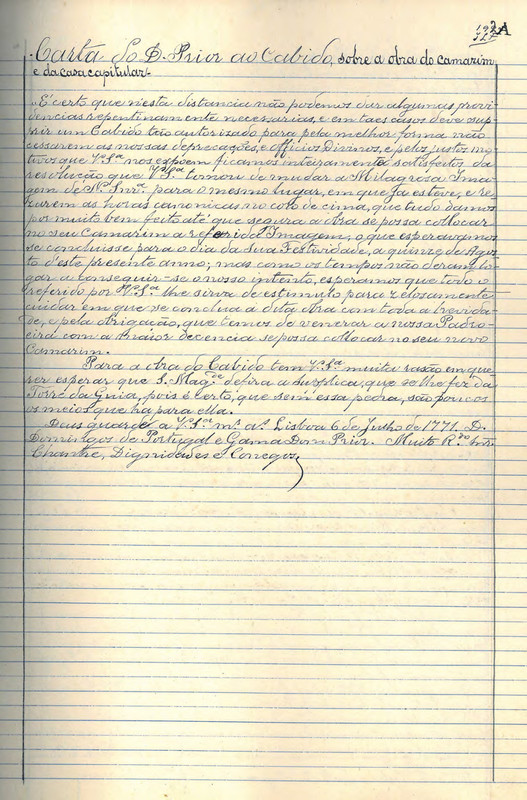 192A
Carta do D. Prior ao Cabido, sobre a obra do camarim
e da casa capitular.
"É certo que nesta distancia não podemos dar algumas provi
dencias repentinamente necessarias, e em taes casos deve sup
prir um Cabido tão autorizado para pela melhor forma não
cessarem as nossas deprecações, e officios Divinos, e pelos justos mo
tivos que Vª Sª nos expoem ficamos inteiramente satisfeitos da
resolução que Vª Sª tomou de mudar a Milagrosa Ima
gem de Nª Snrª para o mesmo lugar, em que já esteve, e re
zarem as horas canonicas no côro de cima, que tudo damos
por muito bem feito até que segura a obra se possa collocar
no seu Camarim a referida Imagem, o que esperavamos
se concluisse para o dia da sua Festividade, a quinze de Agos
to d'este presente anno; mas como os tempos não deram lo
gar a conseguir-se o nosso intento, esperamos que todo o
referido por Vª Sª lhe sirva de estimulo para zelosamente
cuidar em que se conclua a dita obra com toda a brevida
de, e pela obrigação, que temos de venerar a nossa Padro
eira com a maior decencia se possa collocar no seu novo
Camarim.
Para a obra do Cabido tem Vª Sª muita rasão em que
rer esperar que S. Magde defira a supplica, que se lhe fez da
Torre da Guia, pois é certo, que sem essa pedra, são poucos
os meios que ha para ella.
Deus guarde a Vª Sª mª aª Lisboa 6 de Julho de 1771. D.
Domingos de Portugal e Gama Dom Prior. Muito Rdo
Chantre, Dignidades e Conegos.